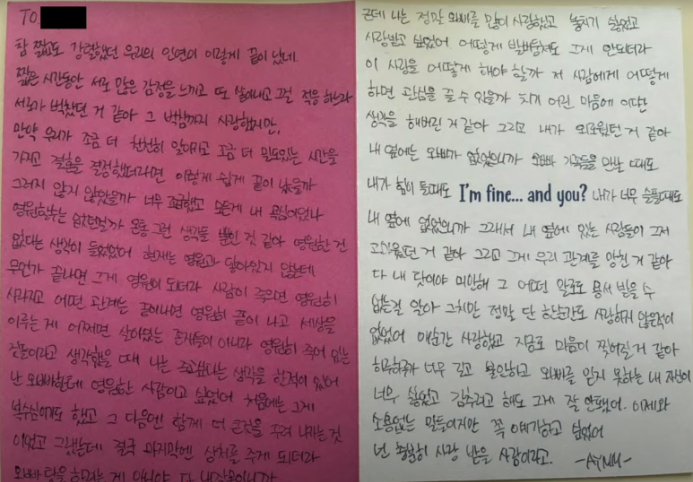 TO
참 짧고도 강렬했던 우리의 인연이 이렇게 끝이 났네
짧은 시간동안 서로 많은 감정을 느끼고 또 쏟아내고 그걸 적응 하느라
서로가 벅찼던 거 같아 그 벅참까지 사랑했지만,
만약 우리가 조금 더 천천히 알아가고 조금 더 밀도있는 시간을
가지고 결혼을 결정했더라면 이렇게 쉽게 끝이 났을까
그러지 않지 않았을까 너무 조급했고 모든게 내 욕심이었나
영원할수는 없었던걸까 온통 그런 생각들 뿐인 것 같아 영원한 건
없다는 생각이 들었었어 현재는 영원과 닿아있지 않는데
무언가 끝나면 그게 영원이 되더라 사람이 죽으면 영원히
사라지고 어떤 관계는 끝이나면 영원히 끝이 나고 세상을
이루는 게 어쩌면 살아있는 존재들이 아니라 영원히 죽어 있는
것들이라고 생각했을 때 나는 죽고싶다는 생각을 한적이 있어
난 오빠한테 영원한 사람이고 싶었어 처음에는 그게
복수심이기도 했고 그 다음엔 함께 더 큰것을 꾸려 나가는 것
이었고 그랬는데 결국 마지막엔 상처를 주게 되더라
오빠 탓을 하려는 게 아니야 다 내 잘못이니까
근데 나는 정말 오빠를 많이 사랑했고 놓치기 싫었고
사랑받고 싶었어 어떻게 발버둥쳐도 그게 안되더라
이 사랑을 어떻게 해야 할까 저 사람에게 어떻게
하면 관심을 끌 수 있을까 치기 어린 마음에 이런
생각을 해버린 거 같아 그리고 내가 외로웠던 거 같아
내 옆에는 오빠가 없었으니까 오빠 가족들을 만날 때도
내가 힘이 들때도 I'm fine... and you? 내가 너무 슬플때도
내 옆에 없었으니까 그래서 내 옆에 있는 사람들이 그저
고마웠던 거 같아 그리고 그게 우리 관계를 망친 거 같아
다 내 탓이야 미안해 그 어떤 말로도 용서 받을 수
없는걸 알아 그치만 정말 단 한순간도 사랑하지 않은적이
없었어 매순간 사랑했고 지금도 마음이 찢어질 거 같아
하루하루가 너무 길고 불안하고 오빠를 잊지 못하는 내 자신이
너무 싫었고 감추려고 해도 그게 잘 안됐어. 이제와
소용없는 말들이지만 꼭 얘기하고 싶었어
넌 충분히 사랑 받을 사람이라고.